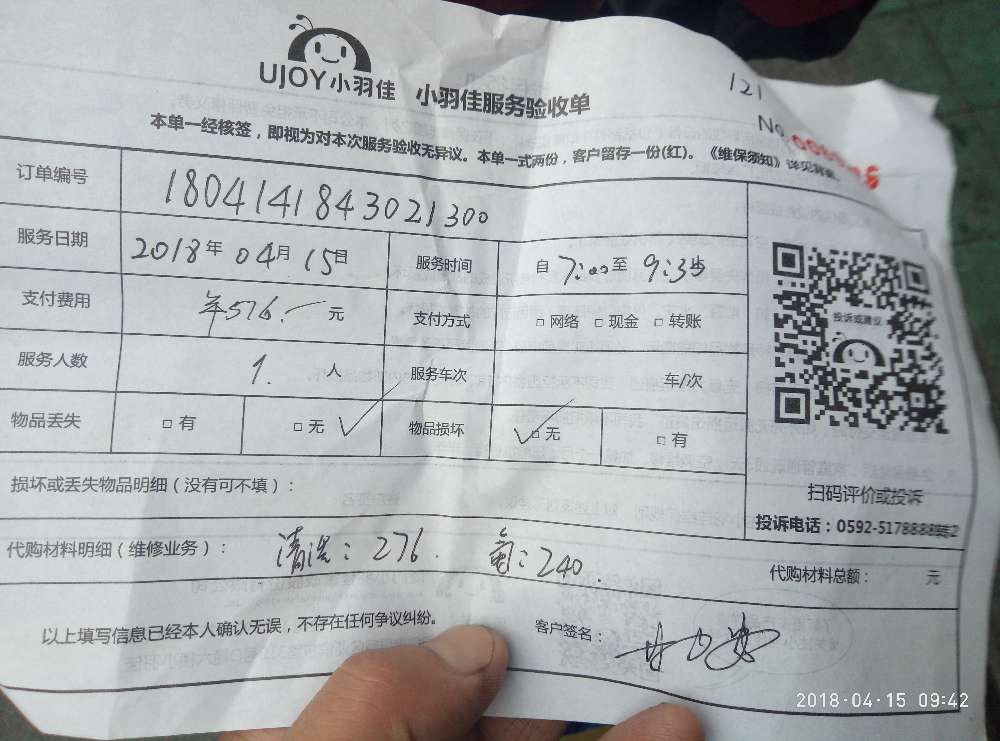 UJOY小羽佳 小羽佳服务验收单
121
No.
本单一经核签，即视为对本次服务验收无异议。本单一式两份，客户留存一份(红)。《维保须知》详见背面。
订单编号 1804141843021300
服务日期 2018年 04月 15日 服务时间 自 7:00至 9:35
支付费用 576.- 元 支付方式 □ 网络 □ 现金 □ 转账
服务人数 1. 人 服务车次 车/次
物品丢失 □ 有 □ 无 ✓ 物品损坏 ✓ □ 无 □ 有
投诉或建议
扫码评价或投诉
投诉电话：0592-5178888
损坏或丢失物品明细（没有可不填）：
代购材料明细（维修业务）： 清洗：276. 氟：240. 代购材料总额： 元
以上填写信息已经本人确认无误，不存在任何争议纠纷。 客户签名：
2018-04-15 09:42